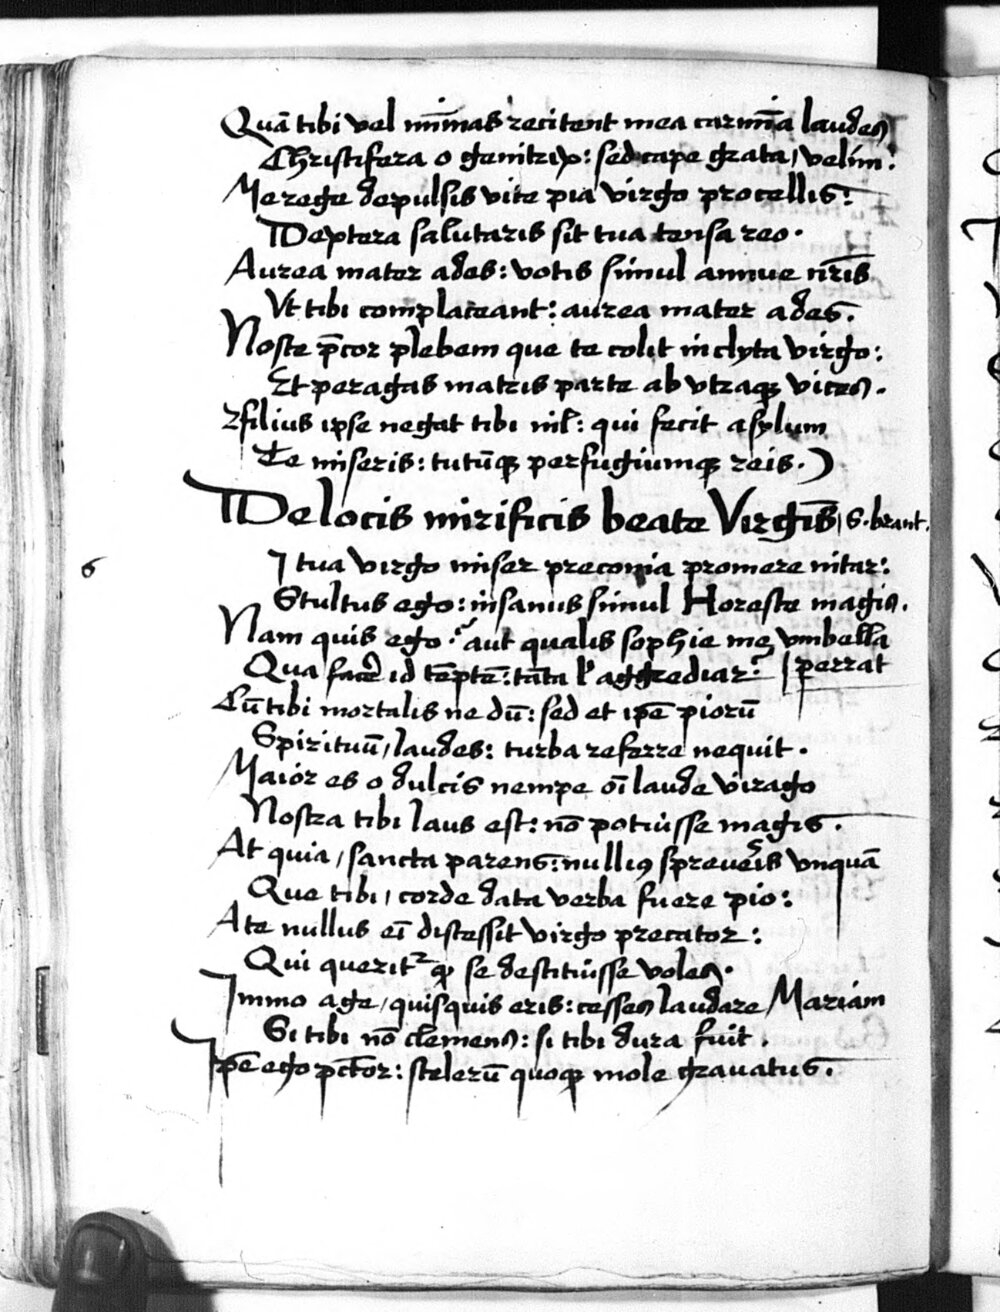 Quā tibi vel minīmas recitent mea carmīa laudes
Christifera o genitrix: sed cape grata, velim:
Me rege depulsis vite pia virgo procellis:
Dextera salutaris sit tua tensa reo.
Aurea mater ades: votis simul annue nr̄is
Vt tibi complaceant: aurea mater ades.
Nosce p̄cor plebem que te colit inclyta virgo:
Et peragas matris parte ab vtraqꝫ vices.
filius ipse negat tibi nil: qui fecit asylum
Te miseris: tutūqꝫ perfugiumqꝫ reis.
De locis mirificis beate Virgīs, S. brant.
6
I tua virgo miser preconia promere nitar:
Stultus ego: insanus simul Horeste magis.
Nam quis ego: aut qualis sophie me vmbella
Qua facē id tēptē: tāta aggrediar: | perrat
Cū tibi mortalis ne dū: sed et ip̄e piorū
Spirituū, laudes: turba referre nequit.
Maior es o dulcis nempe oī laude virago
Nostra tibi laus est: nō potuisse magis.
At quia, sancta parens: nullius spreueris vnquā
Que tibi, corde data verba fuere pio:
A te nullus eī discessit virgo precator:
Qui querit se destituisse voles.
Immo age, quisquis eris: cesses laudare Mariam
Si tibi nō clemens: si tibi dura fuit.
Ip̄e ego pctor: scelerū quoqꝫ mole grauatus.